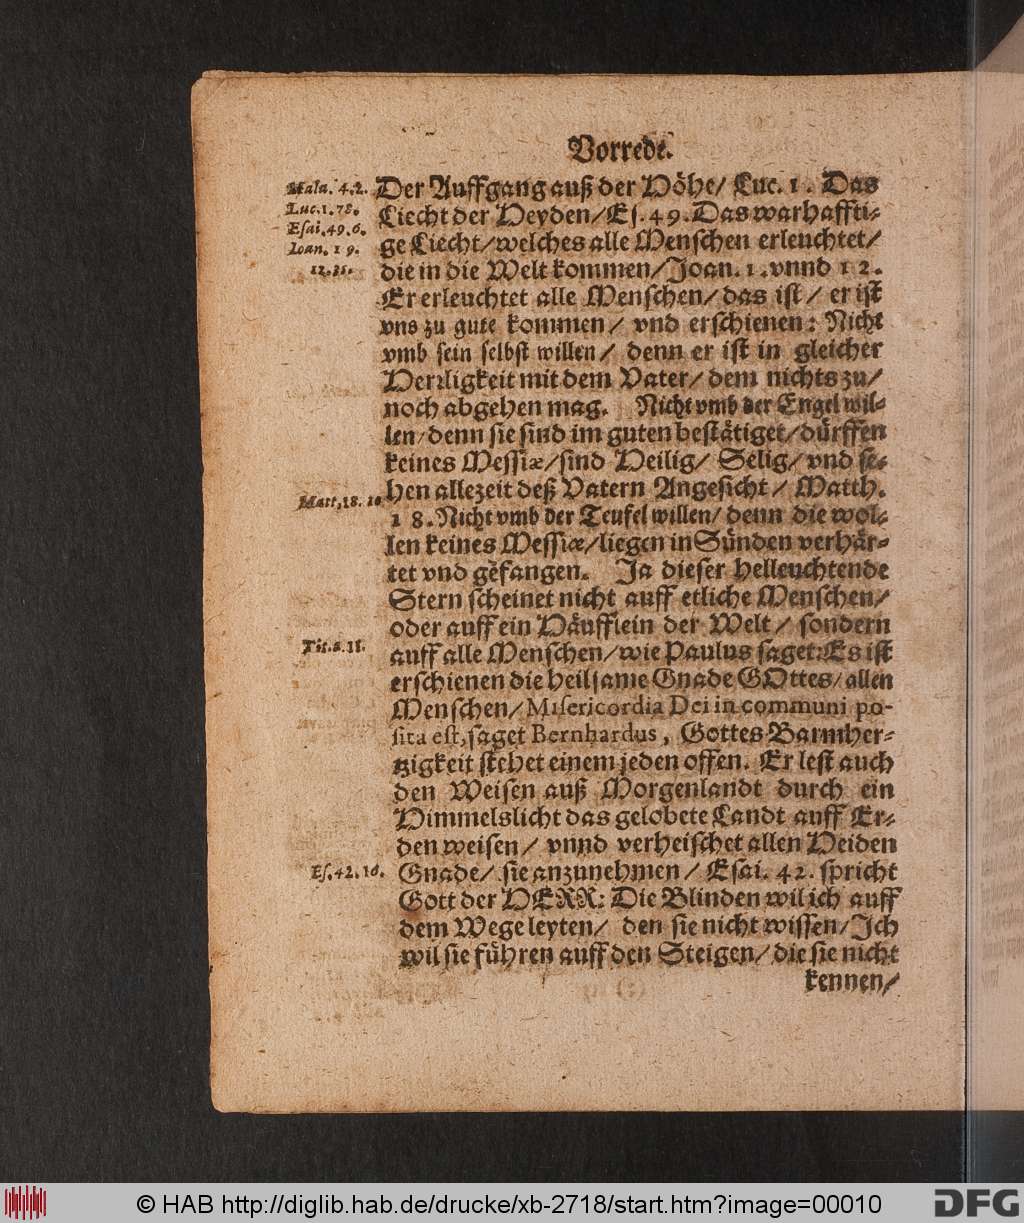 Vorrede.
Mala. 4. 2.
Luc. 1. 78.
Esai. 49. 6.
Ioan. 1 9.
12. 35.
Der Auffgang auß der Höhe/ Luc. 1. Das
Liecht der Heyden/Es. 49. Das warhaffti-
ge Liecht/welches alle Menschen erleuchtet/
die in die Welt kommen/Joan. 1. vnnd 12.
Er erleuchtet alle Menschen/das ist/ er ist
vns zu gute kommen/ vnd erschienen: Nicht
vmb sein selbst willen/ denn er ist in gleicher
Herrligkeit mit dem Vater/dem nichts zu/
noch abgehen mag. Nicht vmb der Engel wil-
len/denn sie sind im guten bestätiget/dürffen
keines Messiæ/sind Heilig/ Selig/ vnd se-
Matt. 18. 10
hen allezeit deß Vatern Angesicht/ Matth.
18. Nicht vmb der Teufel willen/ denn die wol-
len keines Messiæ/liegen in Sünden verhär-
tet vnd gefangen. Ja dieser helleuchtende
Stern scheinet nicht auff etliche Menschen/
oder auff ein Häufflein der Welt/ sondern
Tit. 2. 11.
auff alle Menschen/wie Paulus saget: Es ist
erschienen die heilsame Gnade GOttes/allen
Menschen/ Misericordia Dei in communi po-
sita est, saget Bernhardus, Gottes Barmher-
tzigkeit stehet einem jeden offen. Er lest auch
den Weisen auß Morgenlandt durch ein
Himmelslicht das gelobete Landt auff Er-
den weisen/ vnnd verheischet allen Heiden
Es. 42. 16.
Gnade/ sie anzunehmen/ Esai. 42. spricht
Gott der HERR: Die Blinden wil ich auff
dem Wege leyten/ den sie nicht wissen/Ich
wil sie führen auff den Steigen/die sie nicht
kennen/
© HAB http://diglib.hab.de/drucke/xb-2718/start.htm?image=00010
DFG